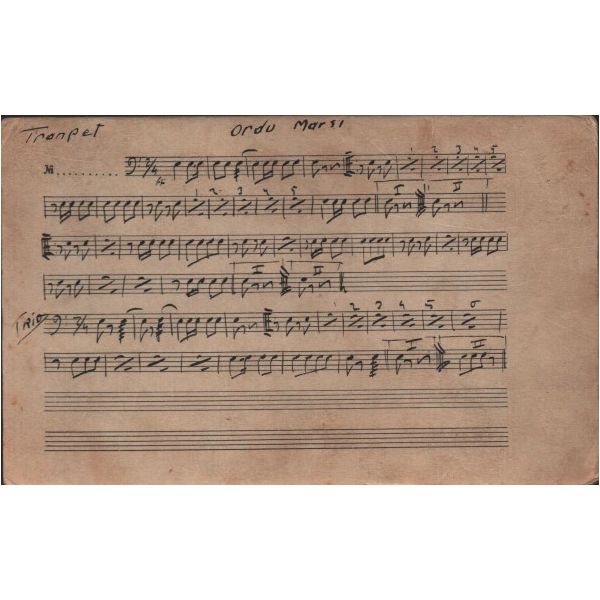 Tranpet
Ordu Marşı
№ ..........
2/4
1 2 3 4 5
1 2 3 4 5
I II
I II
TRİO
2/4
2 3 4 5 6
I II